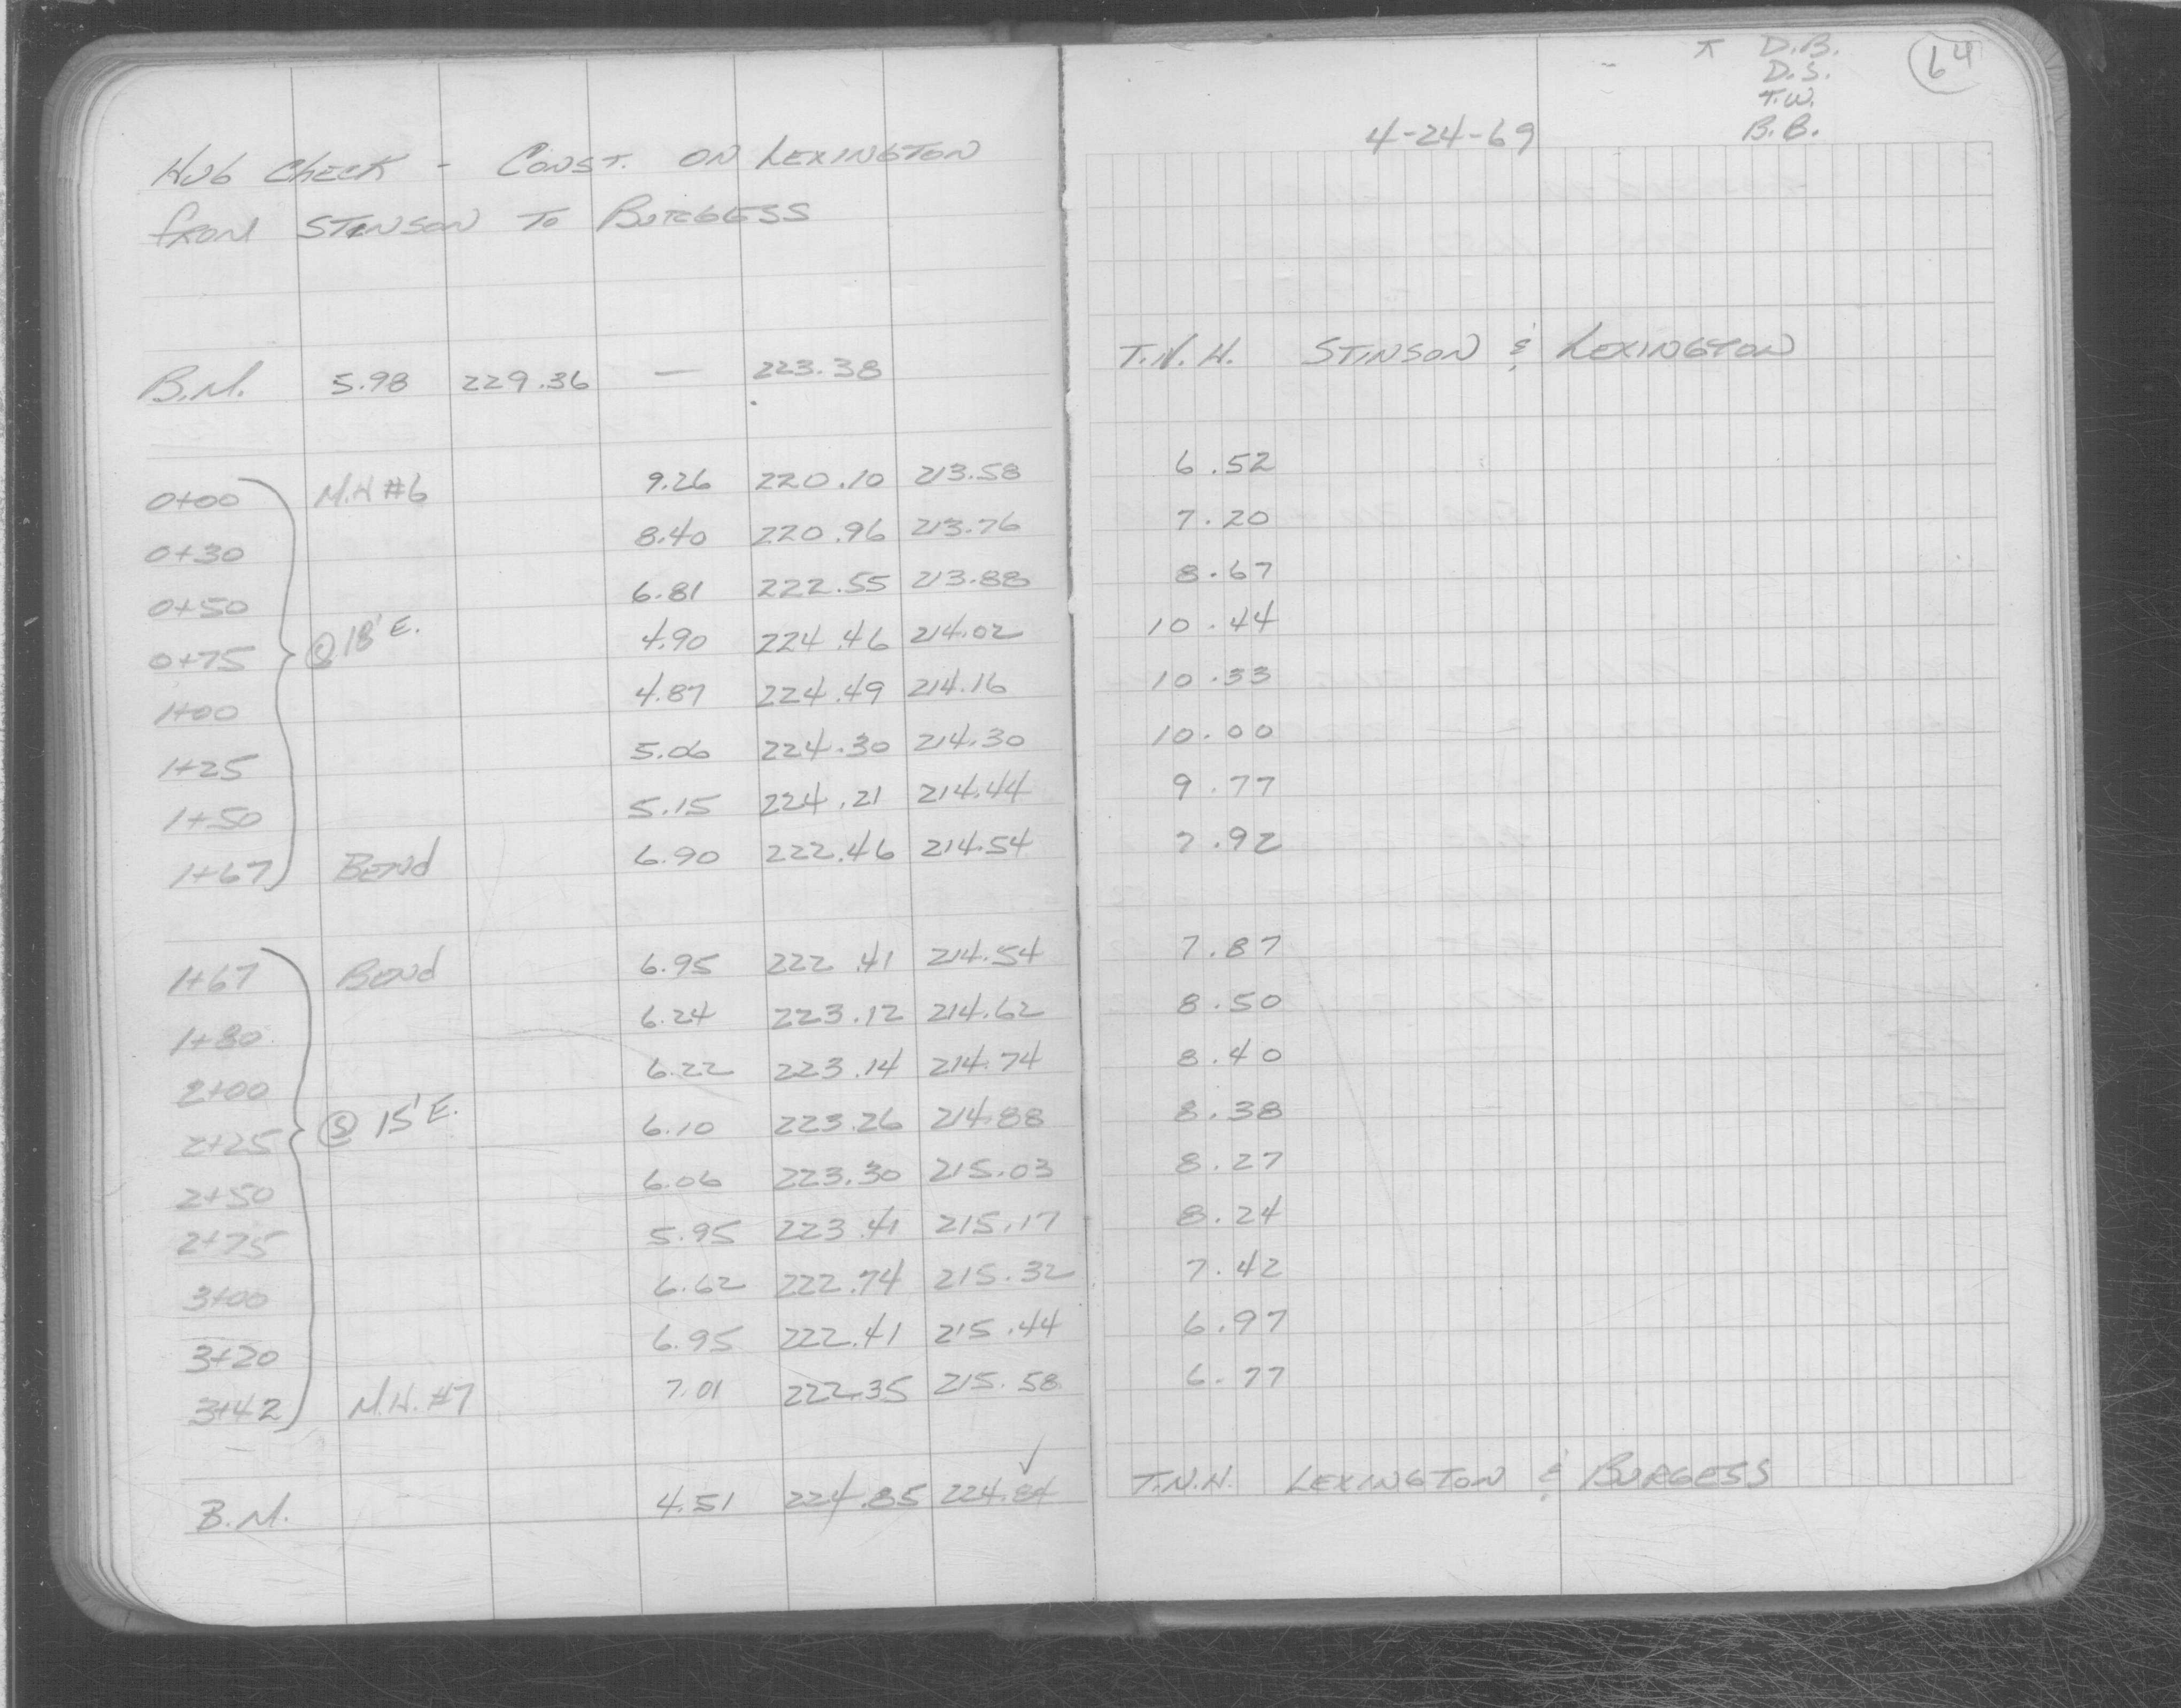 Hub Check - Const. on Lexington
from Stinson to Burgess
B.M. 5.98 229.36 — 223.38
0+00 M.H #6 9.26 220.10 213.58
0+30 8.40 220.96 213.76
0+50 6.81 222.55 213.88
0+75 @ 18' E. 4.90 224.46 214.02
1+00 4.87 224.49 214.16
1+25 5.06 224.30 214.30
1+50 5.15 224.21 214.44
1+67 Bend 6.90 222.46 214.54
1+67 Bend 6.95 222.41 214.54
1+80 6.24 223.12 214.62
2+00 6.22 223.14 214.74
2+25 @ 15' E. 6.10 223.26 214.88
2+50 6.06 223.30 215.03
2+75 5.95 223.41 215.17
3+00 6.62 222.74 215.32
3+20 6.95 222.41 215.44
3+42 M.H. #7 7.01 222.35 215.58
B.M. 4.51 224.85 224.84 ✓
⊼ D.B.
D.S.
T.W.
B.B.
64
4-24-69
T.N.H. Stinson & Lexington
6.52
7.20
8.67
10.44
10.33
10.00
9.77
7.92
7.87
8.50
8.40
8.38
8.27
8.24
7.42
6.97
6.77
T.N.H. Lexington & Burgess